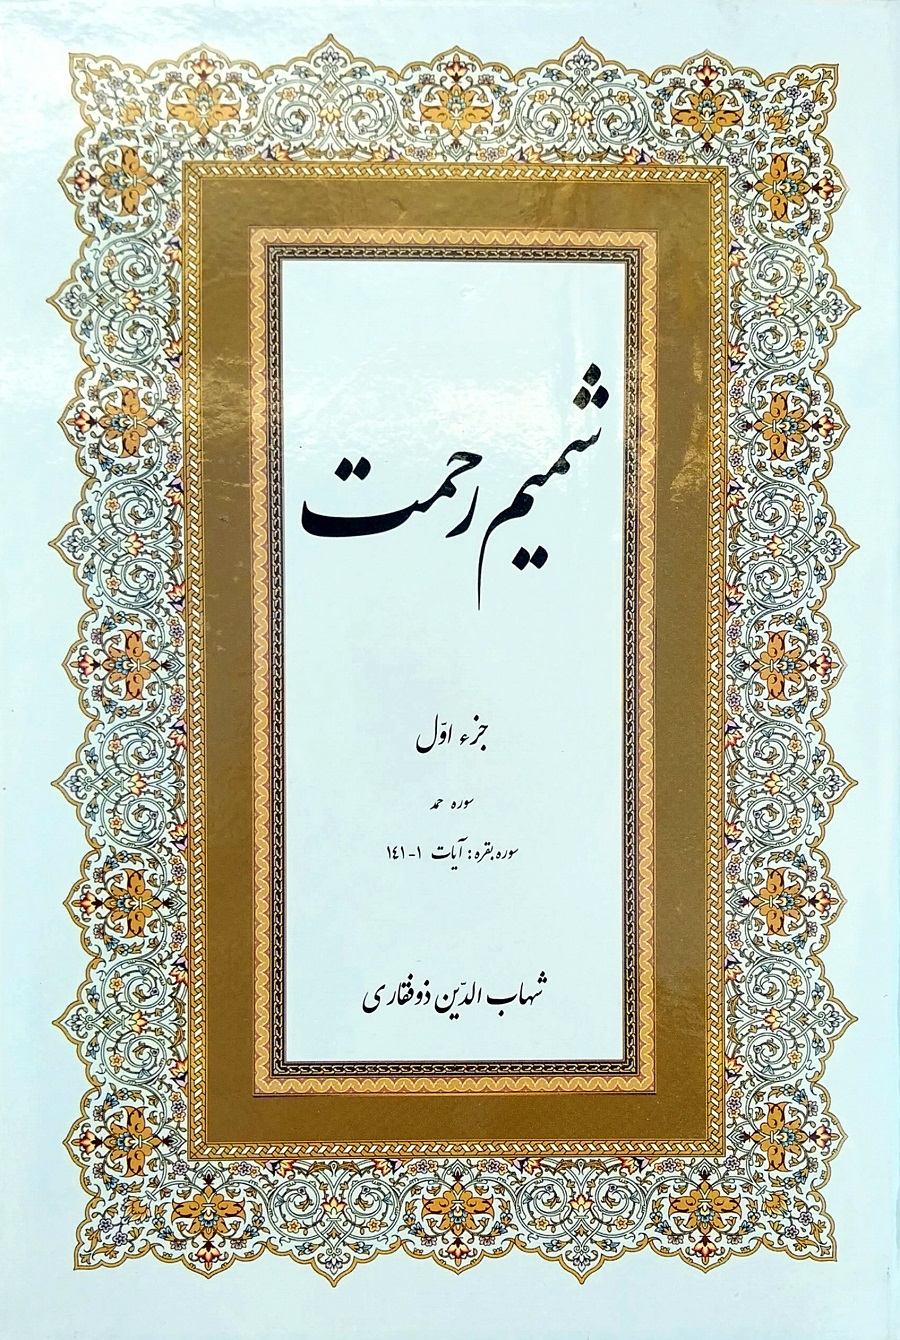 شمیم رحمت
جزء اوّل
سوره حمد
سوره بقره: آیات ۱-۱٤۱
شهاب الدّین ذوفقاری